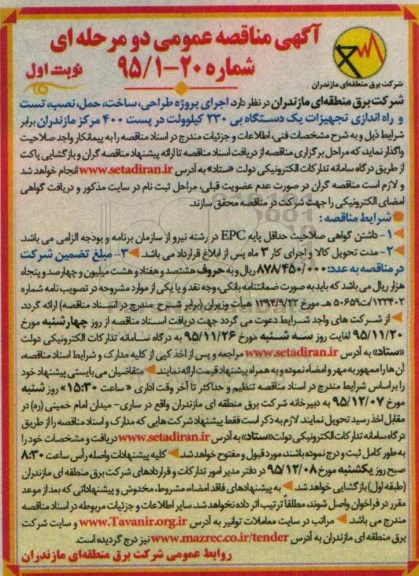 آگهی مناقصه عمومی دو مرحله ای
شماره ۲۰-۹۵/۱
نوبت اول
شرکت برق منطقه‌ای مازندران
شرکت برق منطقه‌ای مازندران در نظر دارد اجرای پروژه طراحی، ساخت، حمل، نصب، تست
و راه اندازی تجهیزات یک دستگاه بی ۲۳۰ کیلوولت در پست ۴۰۰ مرکز مازندران برابر
شرایط ذیل و به شرح مشخصات فنی، اطلاعات و جزئیات مندرج در اسناد مناقصه را به پیمانکار واجد صلاحیت
واگذار نماید، که مراحل برگزاری مناقصه از دریافت اسناد مناقصه تا ارائه پیشنهاد مناقصه گران و بازگشایی پاکت
از طریق درگاه سامانه تدارکات الکترونیکی دولت «ستاد» به آدرس www.setadiran.ir انجام خواهد شد
و لازم است مناقصه گران در صورت عدم عضویت قبلی، مراحل ثبت نام در سایت مذکور و دریافت گواهی
امضای الکترونیکی را جهت شرکت در مناقصه محقق سازند.
شرایط مناقصه:
۱- داشتن گواهی صلاحیت حداقل پایه EPC در رشته نیرو از سازمان برنامه و بودجه الزامی می باشد.
۲- مدت تحویل کالا و اجرای کار ۳ ماه پس از ابلاغ قرارداد می باشد. ۳- مبلغ تضمین شرکت
در مناقصه به عدد: ۸۷۸/۴۵۰/۰۰۰ ریال و به حروف هشتصد و هفتاد و هشت میلیون و چهارصد و پنجاه
هزار ریال می باشد که باید به صورت ضمانتنامه بانکی، وجه نقد و یا یکی از موارد مشروحه در تصویب نامه شماره
۱۲۳۴۰۲/ت۵۰۶۵۹ هـ مورخ ۱۳۹۴/۹/۲۲ هیأت وزیران (برابر شرح مندرج در اسناد مناقصه) ارائه گردد.
از شرکت های واجد شرایط دعوت می گردد جهت دریافت اسناد مناقصه از روز چهارشنبه مورخ
۹۵/۱۱/۲۰ لغایت روز سه شنبه مورخ ۹۵/۱۱/۲۶ به درگاه سامانه تدارکات الکترونیکی دولت
«ستاد» به آدرس www.setadiran.ir مراجعه و پس از اخذ کپی از کلیه مدارک و شرایط اسناد مناقصه،
آن ها را ممهور به مهر و امضاء نموده و به همراه پیشنهاد قیمت ارائه نمایند. متقاضیان می بایستی پیشنهاد خود
را بر اساس شرایط مندرج در اسناد مناقصه تنظیم و حداکثر تا آخر وقت اداری «ساعت ۱۵:۳۰» روز شنبه
مورخ ۹۵/۱۲/۰۷ به دبیرخانه شرکت برق منطقه ای مازندران واقع در ساری- میدان امام خمینی (ره) در
مقابل اخذ رسید تحویل نمایند. لازم به ذکر است فقط پیشنهاد شرکت هایی که مدارک و اسناد مناقصه را از طریق
درگاه سامانه تدارکات الکترونیکی دولت «ستاد» به آدرس www.setadiran.ir دریافت و مشخصات خود را
به طور کامل ثبت و درج نموده باشند، مورد قبول و مفتوح خواهد شد. کلیه پیشنهادات واصله رأس ساعت ۸:۳۰
صبح روز یکشنبه مورخ ۹۵/۱۲/۰۸ در دفتر مدیر امور تدارکات و قراردادهای شرکت برق منطقه ای مازندران
(طبقه اول) بازگشایی خواهد شد. به پیشنهادهای فاقد امضاء، مشروط، مخدوش و پیشنهاداتی که بعد از موعد
مقرر در فراخوان واصل شوند، مطلقاً ترتیب اثر داده نخواهد شد. سایر اطلاعات و جزئیات مربوطه در اسناد مناقصه
مندرج می باشد. مراتب در سایت معاملات توانیر به آدرس www.Tavanir.org.ir و سایت شرکت
برق منطقه ای مازندران به آدرس www.mazrec.co.ir/tender نیز درج گردیده است.
روابط عمومی شرکت برق منطقه‌ای مازندران